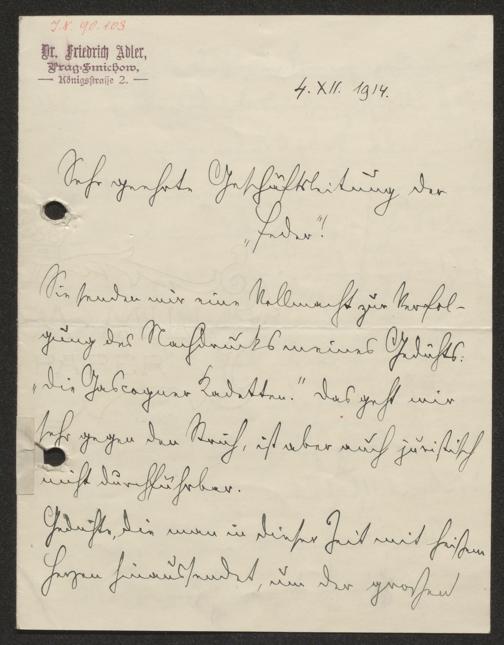 J.N. 90.103
Dr. Friedrich Adler,
Prag-Smichow,
Königsstraße 2.
4. XII. 1914.
Sehr geehrte Geschäftsleitung der
„Feder"!
Sie senden mir eine Vollmacht zur Verfol-
gung des Nachdrucks meines Gedichts:
„Die Gascogner Kadetten." Das geht mir
sehr gegen den Strich, ist aber auch juristisch
nicht durchführbar.
Gedichte, die man in dieser Zeit mit heißem
Herzen hinaussendet, um der großen